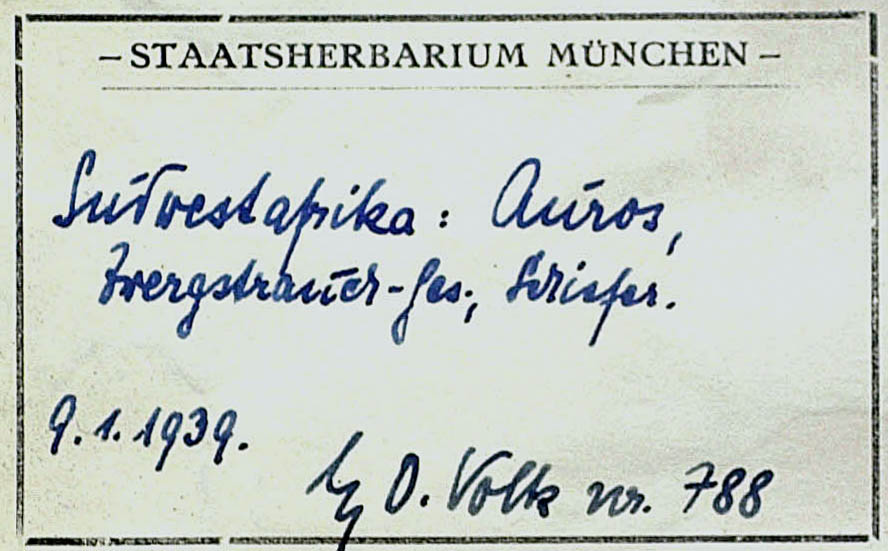 – STAATSHERBARIUM MÜNCHEN –
Südwestafrika: Auros,
Zwergstrauch-Ges., Schiefer.
9.1.1939.
lg O. Volk nr. 788